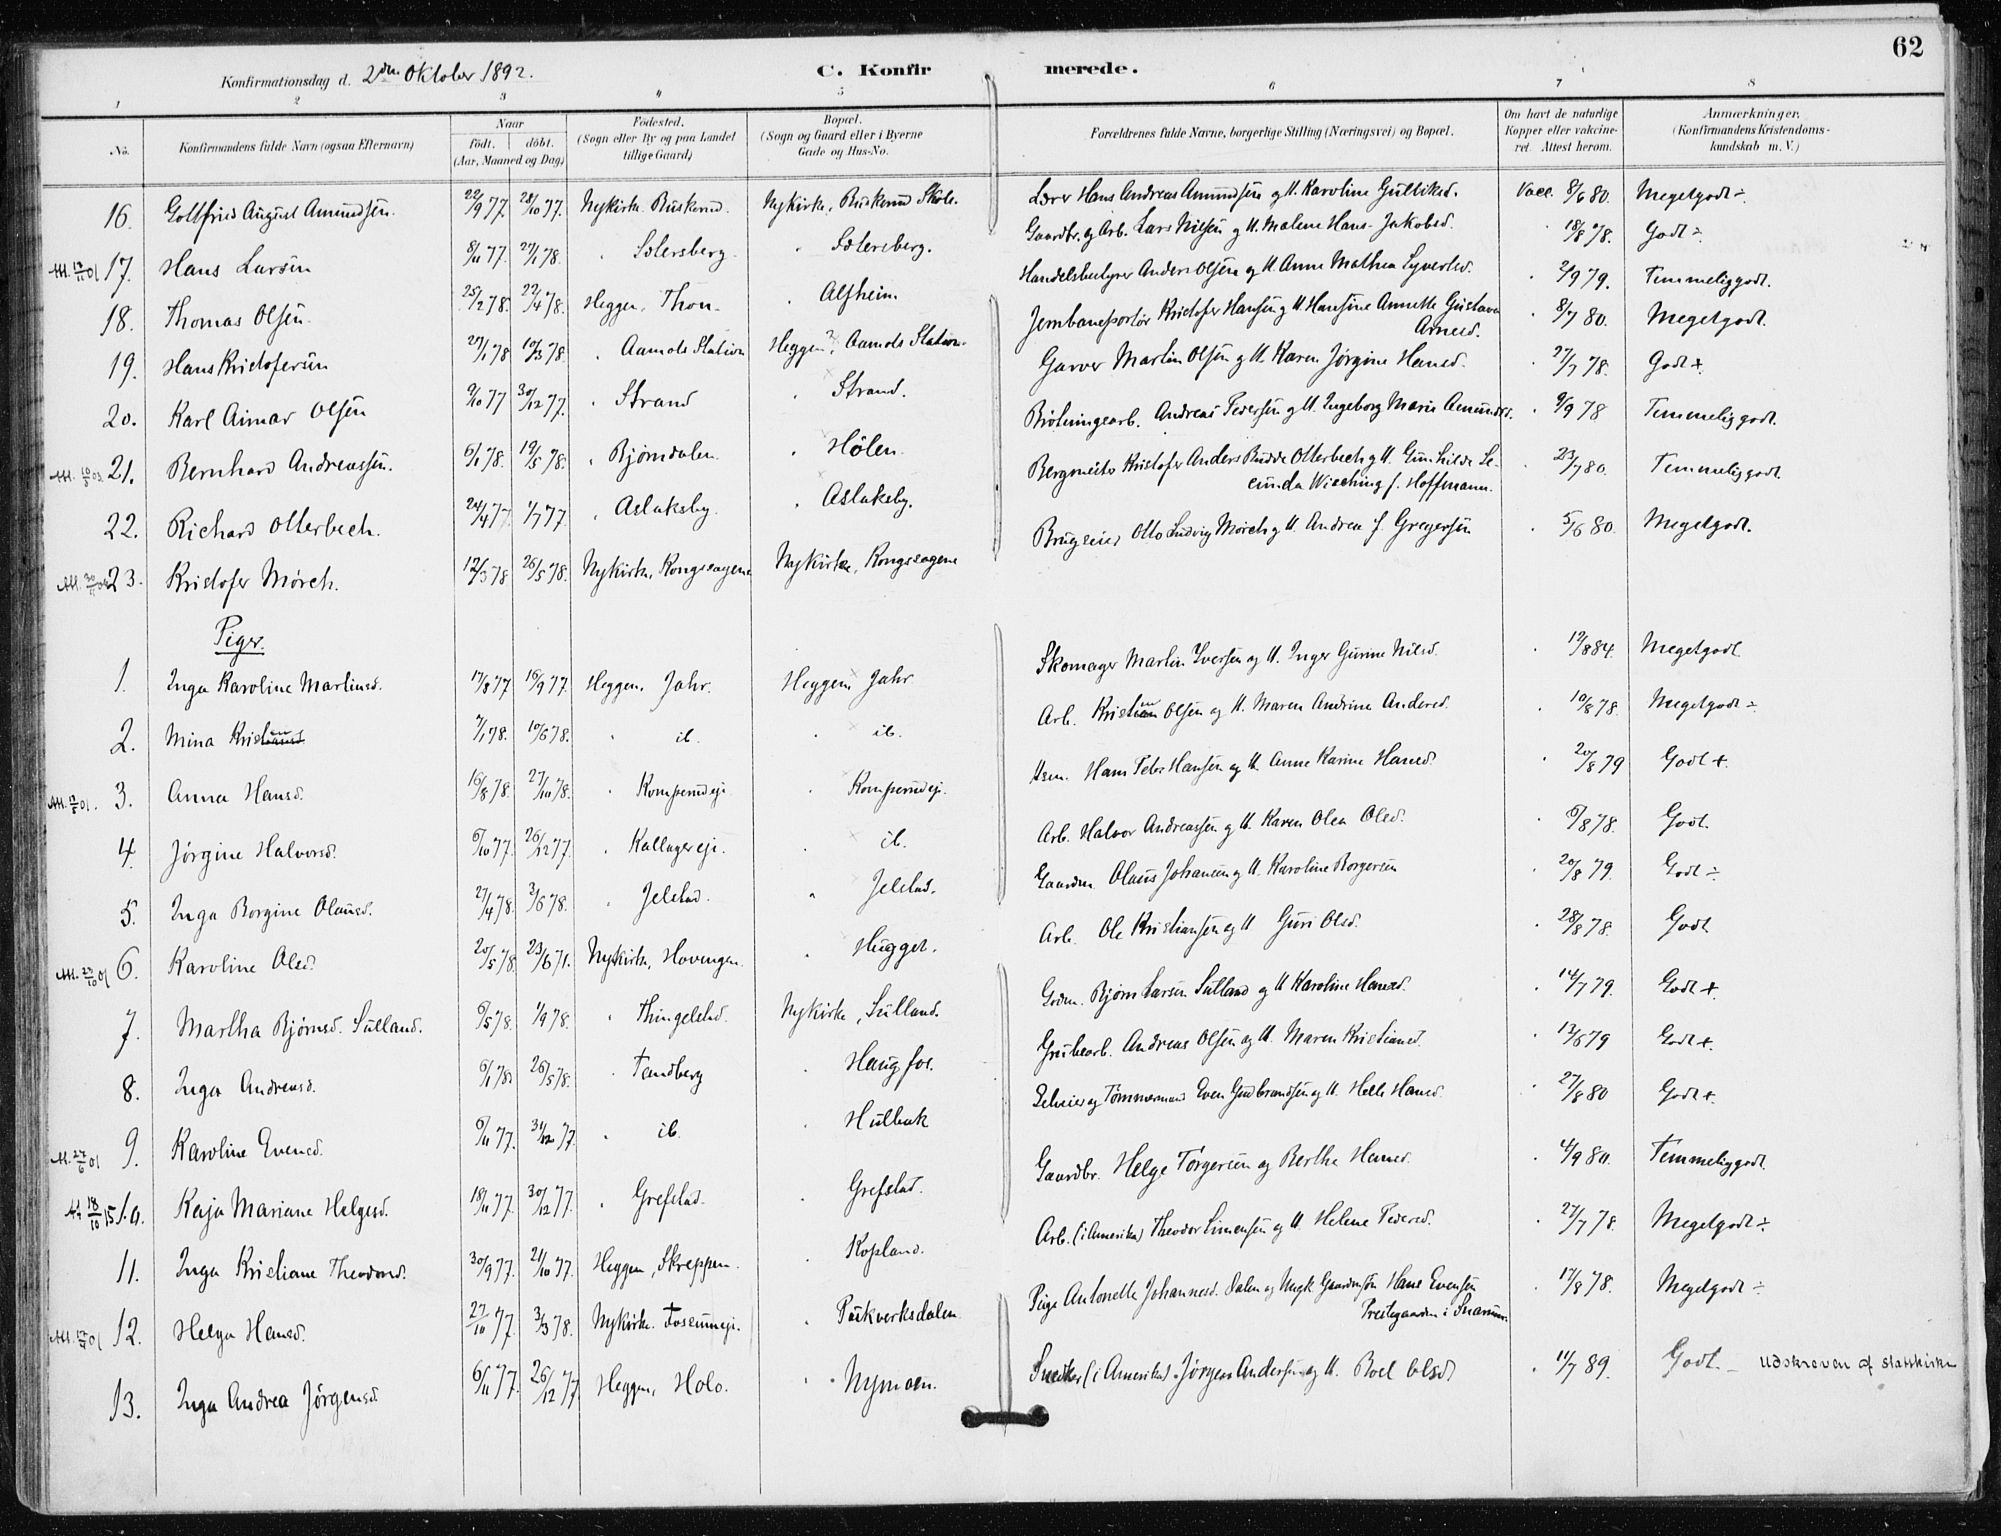 62
Konfirmationsdag d. 2den Oktober 1892.
C. Konfirmerede.
1 2 3 4 5 6 7 8
No.
Konfirmandens fulde Navn (ogsaa Efternavn)
Naar
født. døbt.
(Aar, Maaned og Dag)
Fødested.
(Sogn eller By og paa Landet
tillige Gaard)
Bopæl.
(Sogn og Gaard eller i Byerne
Gade og Hus-No.
Forældrenes fulde Navne, borgerlige Stilling (Næringsvei) og Bopæl.
Om havt de naturlige
Kopper eller vakcine-
ret. Attest herom.
Anmærkninger.
(Konfirmandens Kristendoms-
kundskab m. V.)
16. Gottfried August Amundsen. 22/9 77. 28/10 77. Nykirke. Buskerud. Nykirke, Buskerud Skole. Lærer Hans Andreas Amundsen og H. Karoline Gulliksd. Vacc. 8/6 80. Megetgodt ÷
17. Hans Larsen 8/11 77. 27/1 78. Solersberg. Solersberg. Gaardbr. og Arb. Lars Nilsen og H. Malene Hans- Jakobsd. 18/8 78. Godt ÷
18. Thomas Olsen 25/2 78. 22/4 78. Heggen, Thon. Alfheim. Handelsbestyrer Anders Olsen og H. Anne Mathea Syvertsd. 2/9 79. Temmeliggodt.
19. Hans Kristofersen 27/1 78 10/3 78. Aamots Station Heggen, Aamots Station. Jernbaneportør Kristofer Hansen og H. Hansine Annette Gustava
Arnesd. 8/7 80. Megetgodt.
20. Karl Aimar Olsen 9/10 77 30/12 77. Strand Strand. Garver Martin Olsen og H. Karen Jørgine Hansd. 27/7 78. Godt +
21. Bernhard Andreassen. 6/1 78. 19/5 78. Bjørndalen Hølen. Andreas Pedersen og H. Ingeborg Marie Amundsd. 9/9 78 Temmeliggodt.
22. Richard Otterbech. 24/4 77. 1/7 77. Aslaksby. Aslaksby. Bergmester Kristofer Anders Budde Otterbech og H. Gunhilde Le-
Wisching f. Hoffmann. 23/7 80. Temmeliggodt
23. Kristofer Mørch. 12/3 78 26/5 78. Nykirke, Kongssagene Nykirke, Kongssagene Brugseier Otto Ludvig Mørch og H. Andrea f. Gregersen 5/6 80. Megetgodt.
Piger.
1. Inga Karoline Martinsd. 17/8 77 16/9 77. Heggen, Jahr. Heggen Jahr Skomager Martin Iversen og H. Inger Gurine Nilsd. 19/8 84. Megetgodt
2. Mina 7/1 78. 10/6 78. ib. ib. Arb. Olsen og H. Maren Andrine Andersd. 10/8 78. Megetgodt ÷
3. Anna Hansd. 16/8 78. 27/10 78. Komperudej. Komperudej. Hsm. Hans Peter Hansen og H. Anne Karine Hansd. 20/8 79 Godt +.
4. Jørgine Halvorsd. 6/10 77. 26/12 77. Kallagereje. ib. Arb. Halvor Andreassen og H. Karen Olea Olsd. 6/8 78. Godt.
5. Inga Borgine Olausd. 27/4 78. 3/6 78. Jelstad. Jelstad. Gaardm. Olaus Johansen og H. Karoline Borgersen 20/8 79. Godt ÷
6. Karoline Olsd. 20/5 78. 23/6 71. Nykirke, Hovengen. Hugget. Arb. Ole Kristiansen og H Guri Olsd. 28/8 78. Godt
7. Martha Bjørnsd. Sulland. 6/5 78. 1/9 78. Thingelstad. Nykirke, Sulland. Gdm. Bjørn Larsen Sulland og H Karoline Hansd. 14/7 79. Godt +.
8. Inga Andreasd. 6/1 78. 26/5 78. Tandberg Haugfos. Grubearb. Andreas Olsen og H. Maren Kristiansd. 13/6 79 Godt +.
9. Karoline Evensd. 6/11 77. 31/12 77. ib Hulbak Selveier og Tømmermand Even Gudbrandsen og H. Helle Hansd. 27/8 80 Godt +.
10. Kaja Mariane Helgesd. 18/11 77. 30/12 77. Grefstad. Grefstad. Gaardbr. Helge Torgersen og Berthe Hansd. 4/9 80. Temmeliggodt.
11. Inga Kristiane Theodorsd. 30/9 77. 21/10 77. Heggen, Skreppen. Kopland. Arb. (i Amerika) Theodor Simensen og H. Helene Pedersd. 27/7 78. Megetgodt ÷
12. Helga Hansd. 27/10 77. 3/3 78. Nykirke. Fossumej. Pukverksdalen Pige Antonette Johannesd. Dalen og Ungk. Gaardmsøn Hans Evensen
Prestegaarden i Snarum. 17/8 78. Megetgodt ÷
13. Inga Andrea Jørgensd 6/11 77. 26/12 77 Heggen, Holo. Nymoen. Snedker (i Amerika) Jørgen Andersen og H. Boel Olsd 11/7 89. Godt. – Udskreven af statskirken